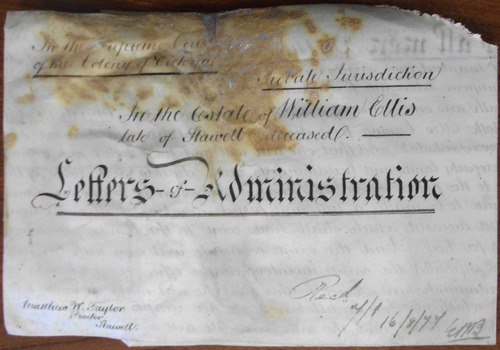 In the Supreme Court
of the Colony of Victoria
Probate Jurisdiction
In the Estate of William Ellis
late of Stawell deceased.
Letters-of-Administration
Matthew W. Taylor
Proctor
Stawell.
16/8/77